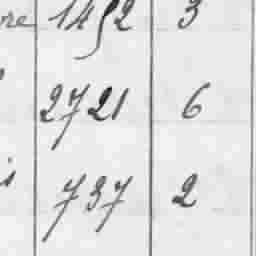 re 1452 3
2721 6
s 737 2